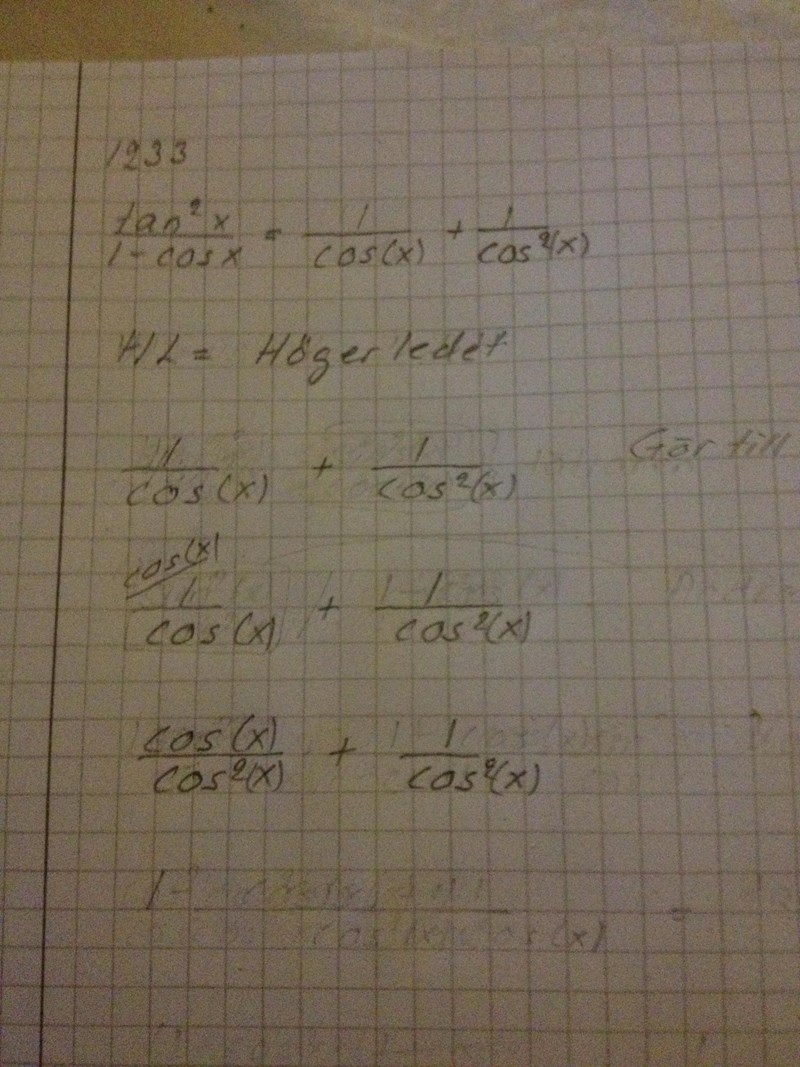 1233
tan²x / 1-cosx = 1 / cos(x) + 1 / cos²(x)
HL = Högerledet
1 / cos(x) + 1 / cos²(x) Gör till
cos(x)
1 / cos(x) + 1 / cos²(x)
cos(x) / cos²(x) + 1 / cos²(x)